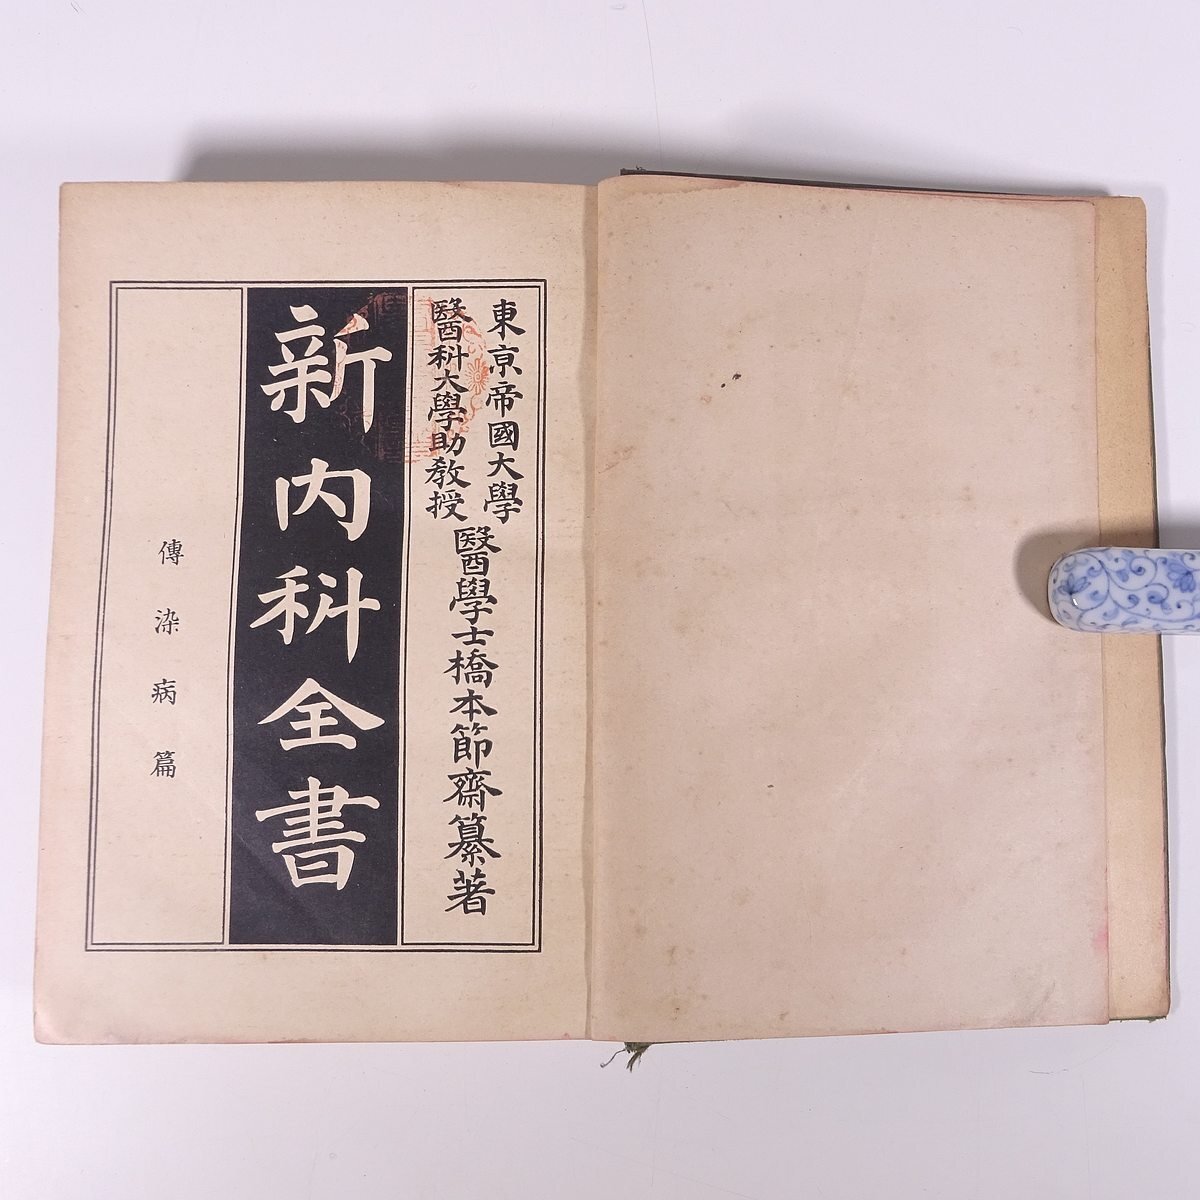 東京帝國大學
醫科大學助教授
醫學士橋本節齋纂著
新内科全書
傳染病篇